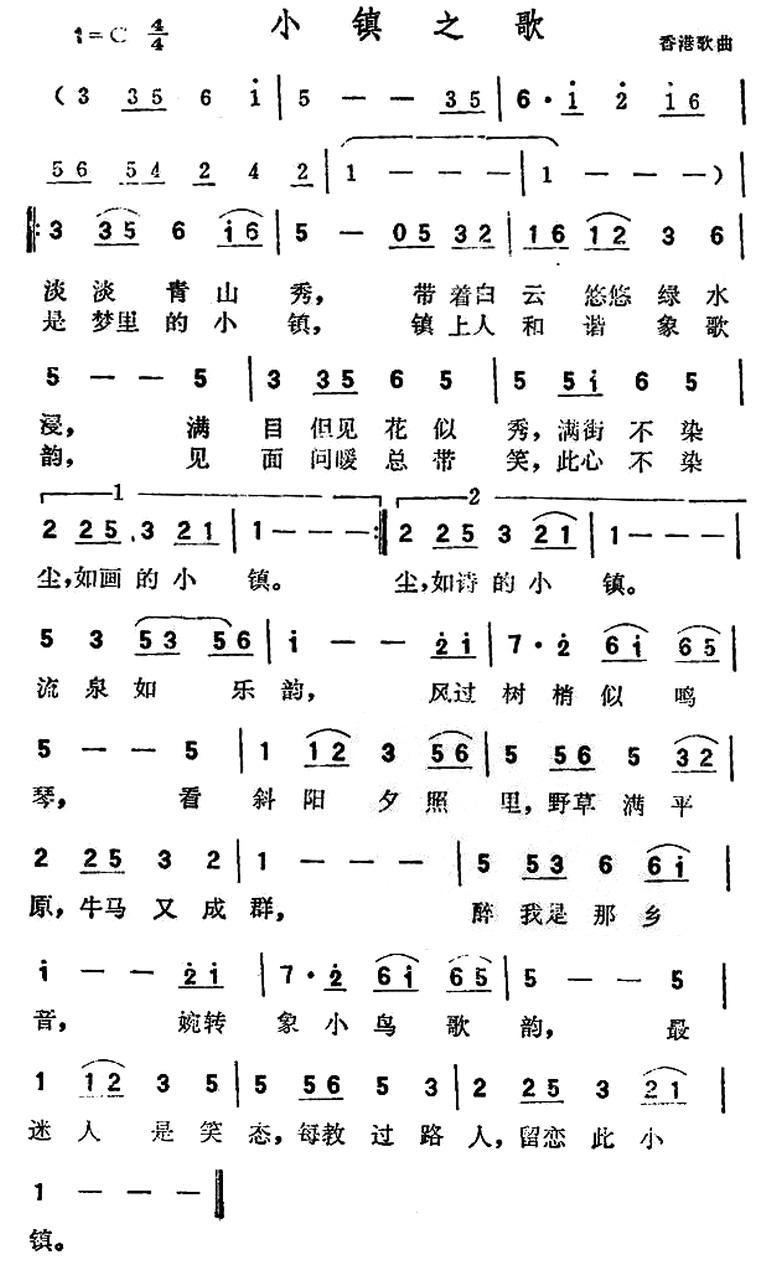 小镇之歌
1=C 4/4 香港歌曲
（3 35 6 i | 5 — — 35 | 6· i 2 i6 |
56 54 2 4 2 | 1 — — — | 1 — — —）|
‖: 3 35 6 i6 | 5 — 05 32 | 16 12 3 6 |
淡淡青山秀，带着白云悠悠绿水
是梦里的小镇，镇上人和谐象歌
5 — — 5 | 3 35 6 5 | 5 5i 6 5 |
浸，满目但见花似秀，满街不染
韵，见面问暖总带笑，此心不染
1 2
2 25 3 21 | 1 — — — :‖ 2 25 3 21 | 1 — — — |
尘，如画的小镇。尘，如诗的小镇。
5 3 53 56 | i — — 2i | 7· 2 6i 65 |
流泉如乐韵，风过树梢似鸣
5 — — 5 | 1 12 3 56 | 5 56 5 32 |
琴，看斜阳夕照里，野草满平
2 25 3 2 | 1 — — — | 5 53 6 6i |
原，牛马又成群，醉我是那乡
i — — 2i | 7· 2 6i 65 | 5 — — 5 |
音，婉转象小鸟歌韵，最
1 12 3 5 | 5 56 5 3 | 2 25 3 21 |
迷人是笑态，每教过路人，留恋此小
1 — — — ‖
镇。